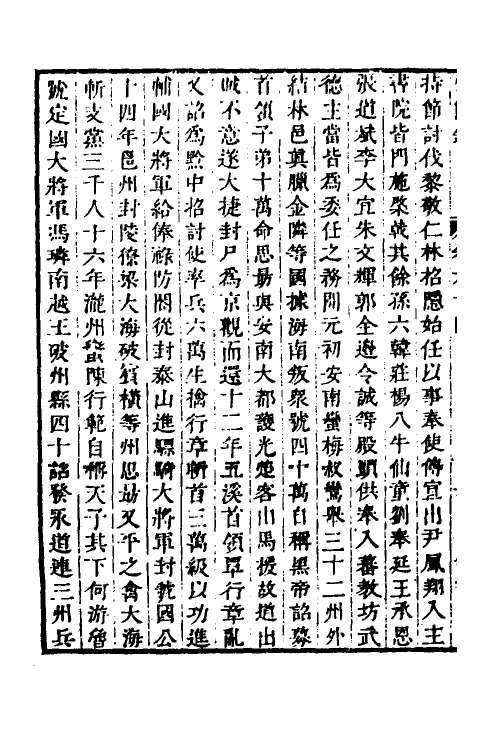 持節討伐黎敬仁林招隱始任以事奉使傳宣出尹鳳翔入主
書院皆門施棨戟其餘孫六韓莊楊八牛仙童劉奉延王承恩
張道斌李大宜朱文輝郭全邊令誠等殿頭供奉入蕃教坊武
德主當皆為委任之務開元初安南蠻梅叔鸞舉三十二州外
結林邑眞臘金隣等國據海南叛衆號四十萬自稱黑帝詔募
首領子弟十萬命思勗與安南大都護光楚客出馬援故道出
賊不意遂大捷封尸為京觀而還十二年五溪首領覃行章亂
又詔為黔中招討使率兵六萬生擒行章斬首三萬級以功進
輔國大將軍給俸祿防閤從封泰山進驃騎大將軍封虢國公
十四年邕州封陵獠梁大海破賓橫等州思勗又平之禽大海
斬支黨三千人十六年瀧州蠻陳行範自稱天子其下何游魯
號定國大將軍馮璘南越王破州縣四十詔發永道連三州兵